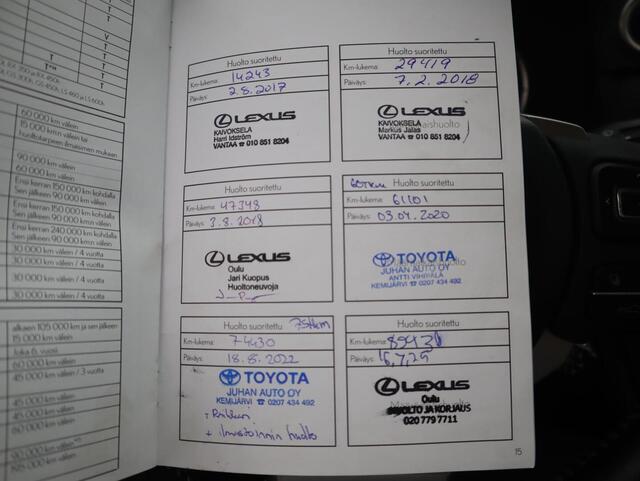 T
T
V
T
T
T**
T
RX 350 ja RX 450h
GS 300h, GS 450h, LS 460 ja LS 600h
60 000 km välein
15 000 km:n välein tai
huoltotarpeen ilmaisimen mukaan
90 000 km välein
60 000 km välein
Ensi kerran 150 000 km kohdalla
Sen jälkeen 90 000 km:n välein
Ensi kerran 150 000 km kohdalla
Sen jälkeen 90 000 km:n välein
Ensi kerran 240 000 km kohdalla
Sen jälkeen 90 000 km:n välein
30 000 km välein / 4 vuotta
30 000 km välein / 4 vuotta
30 000 km välein / 4 vuotta
30 000 km välein / 4 vuotta
alkaen 105 000 km ja sen jälkeen
15 000 km välein
joka 6. vuosi
60 000 km välein
45 000 km välein / 3 vuotta
45 000 km välein
45 000 km välein
60 000 km välein
Huolto suoritettu
Km-lukema: 14243
Päiväys: 2.8.2017
LEXUS
KAIVOKSELA
Harri Idström
VANTAA ☎ 010 851 8204
Huolto suoritettu
Km-lukema: 29419
Päiväys: 7.2.2018
LEXUS
KAIVOKSELA
Markus Jalas
VANTAA ☎ 010 851 8204
Huolto suoritettu
Km-lukema: 47348
Päiväys: 3.8.2018
LEXUS
Oulu
Jari Kuopus
Huoltoneuvoja
60Tkm Huolto suoritettu
Km-lukema: 61101
Päiväys: 03.04.2020
TOYOTA
JUHAN AUTO OY
ANTTI VIHRIÄLÄ
KEMIJÄRVI ☎ 0207 434 492
Huolto suoritettu 75tkm
Km-lukema: 74430
Päiväys: 18.8.2022
TOYOTA
JUHAN AUTO OY
KEMIJÄRVI ☎ 0207 434 492
+ ilmastoinnin huolto
Huolto suoritettu
Km-lukema:
Päiväys: 16,7,25
LEXUS
Oulu
HUOLTO JA KORJAUS
020 779 7711
15